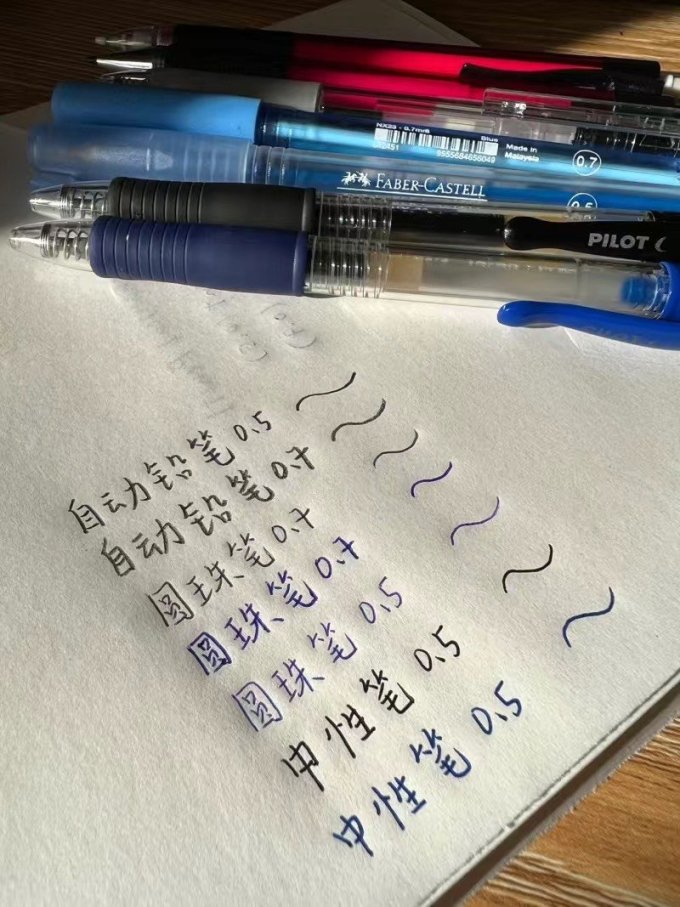 NX23 - 0.7mm
Blue
9555684656049
Made in
Malaysia
0.7
FABER-CASTELL
0.5
PILOT
自动铅笔 0.5
自动铅笔 0.7
圆珠笔 0.7
圆珠笔 0.7
圆珠笔 0.5
中性笔 0.5
中性笔 0.5